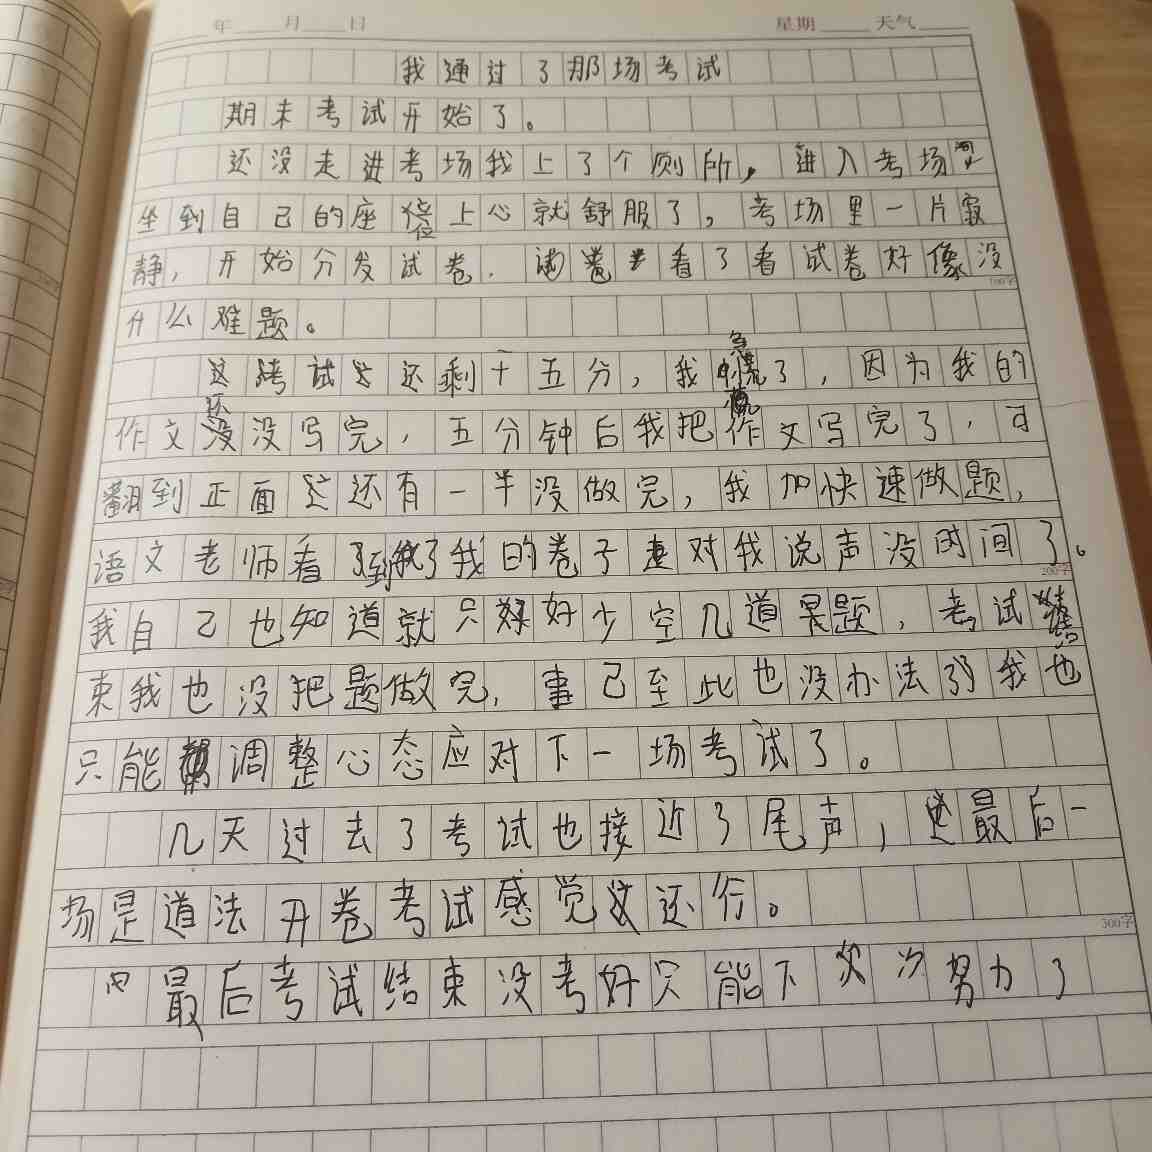 年 月 日 星期 天气
我通过了那场考试
期末考试开始了。
还没走进考场我上了个厕所，进入考场
坐到自己的座位上心就舒服了，考场里一片寂
静，开始分发试卷．看了看试卷好像没
什么难题。
100字
考试还剩十五分，我急慌了，因为我的
作文还没写完，五分钟后我把作文写完了，可
翻到正面还有一半没做完，我加快速做题，
语文老师看到了我的卷子对我说声没时间了。
200字
我自己也知道就只好少空几道题，考试结
束我也没把题做完，事已至此也没办法我也
只能调整心态应对下一场考试了。
几天过去了考试也接近了尾声，最后一
场是道法开卷考试感觉还行。
300字
最后考试结束没考好只能下次努力了